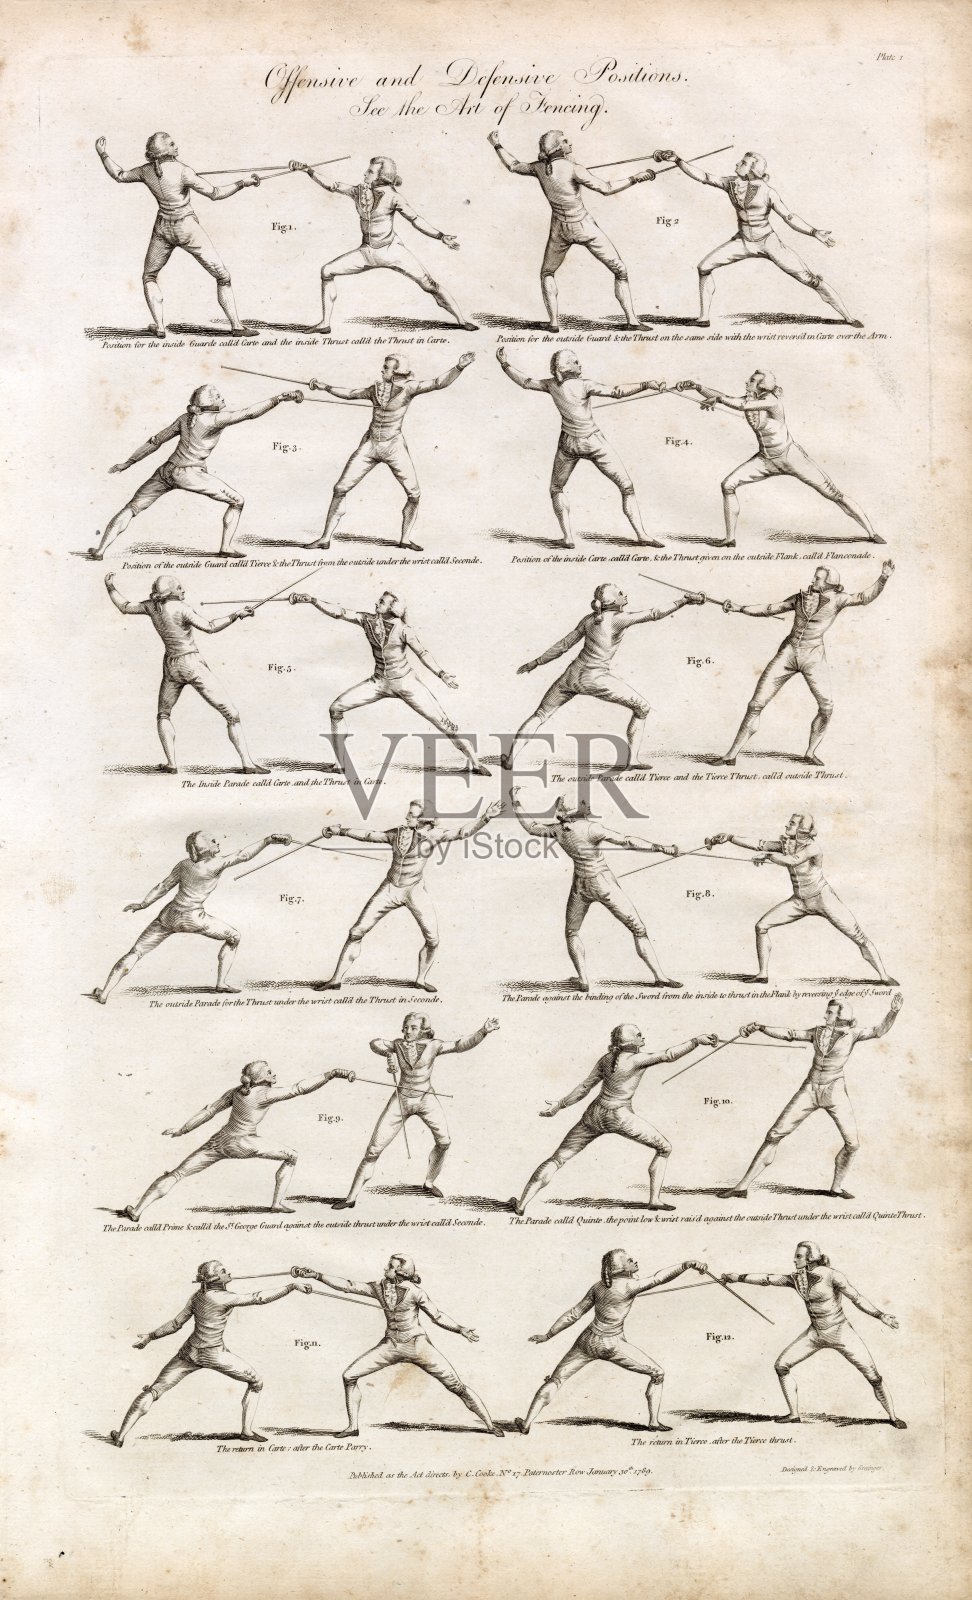 Plate 1
Offensive and Defensive Positions.
See the Art of Fencing.
Fig.1.
Fig 2
Position for the inside Guarde call'd Carte and the inside Thrust call'd the Thrust in Carte.
Position for the outside Guard & the Thrust on the same side with the wrist revers'd in Carte over the Arm.
Fig.3.
Fig.4.
Position of the outside Guard call'd Tierce & the Thrust from the outside under the wrist call'd Seconde.
Position of the inside Carte call'd Carte, & the Thrust given on the outside Flank, call'd Flanconade.
Fig.5.
Fig.6.
The Inside Parade call'd Carte and the Thrust in Carte.
The outside Parade call'd Tierce and the Tierce Thrust, call'd outside Thrust.
VEER
by iStock
Fig.7.
Fig.8.
The outside Parade for the Thrust under the wrist call'd the Thrust in Seconde.
The Parade against the binding of the Sword from the inside to thrust in the Flank by reversing ye edge of ye Sword
Fig.9.
Fig.10.
The Parade call'd Prime & call'd the St. George Guard against the outside thrust under the wrist call'd Seconde.
The Parade call'd Quinte, the point low & wrist rais'd against the outside Thrust under the wrist call'd Quinte Thrust.
Fig.11.
Fig.12.
The return in Carte; after the Carte Parry.
The return in Tierce, after the Tierce thrust.
Published as the Act directs, by C. Cooke, No. 17, Paternoster Row January 30th. 1789.
Designed & Engraved by Grainger.